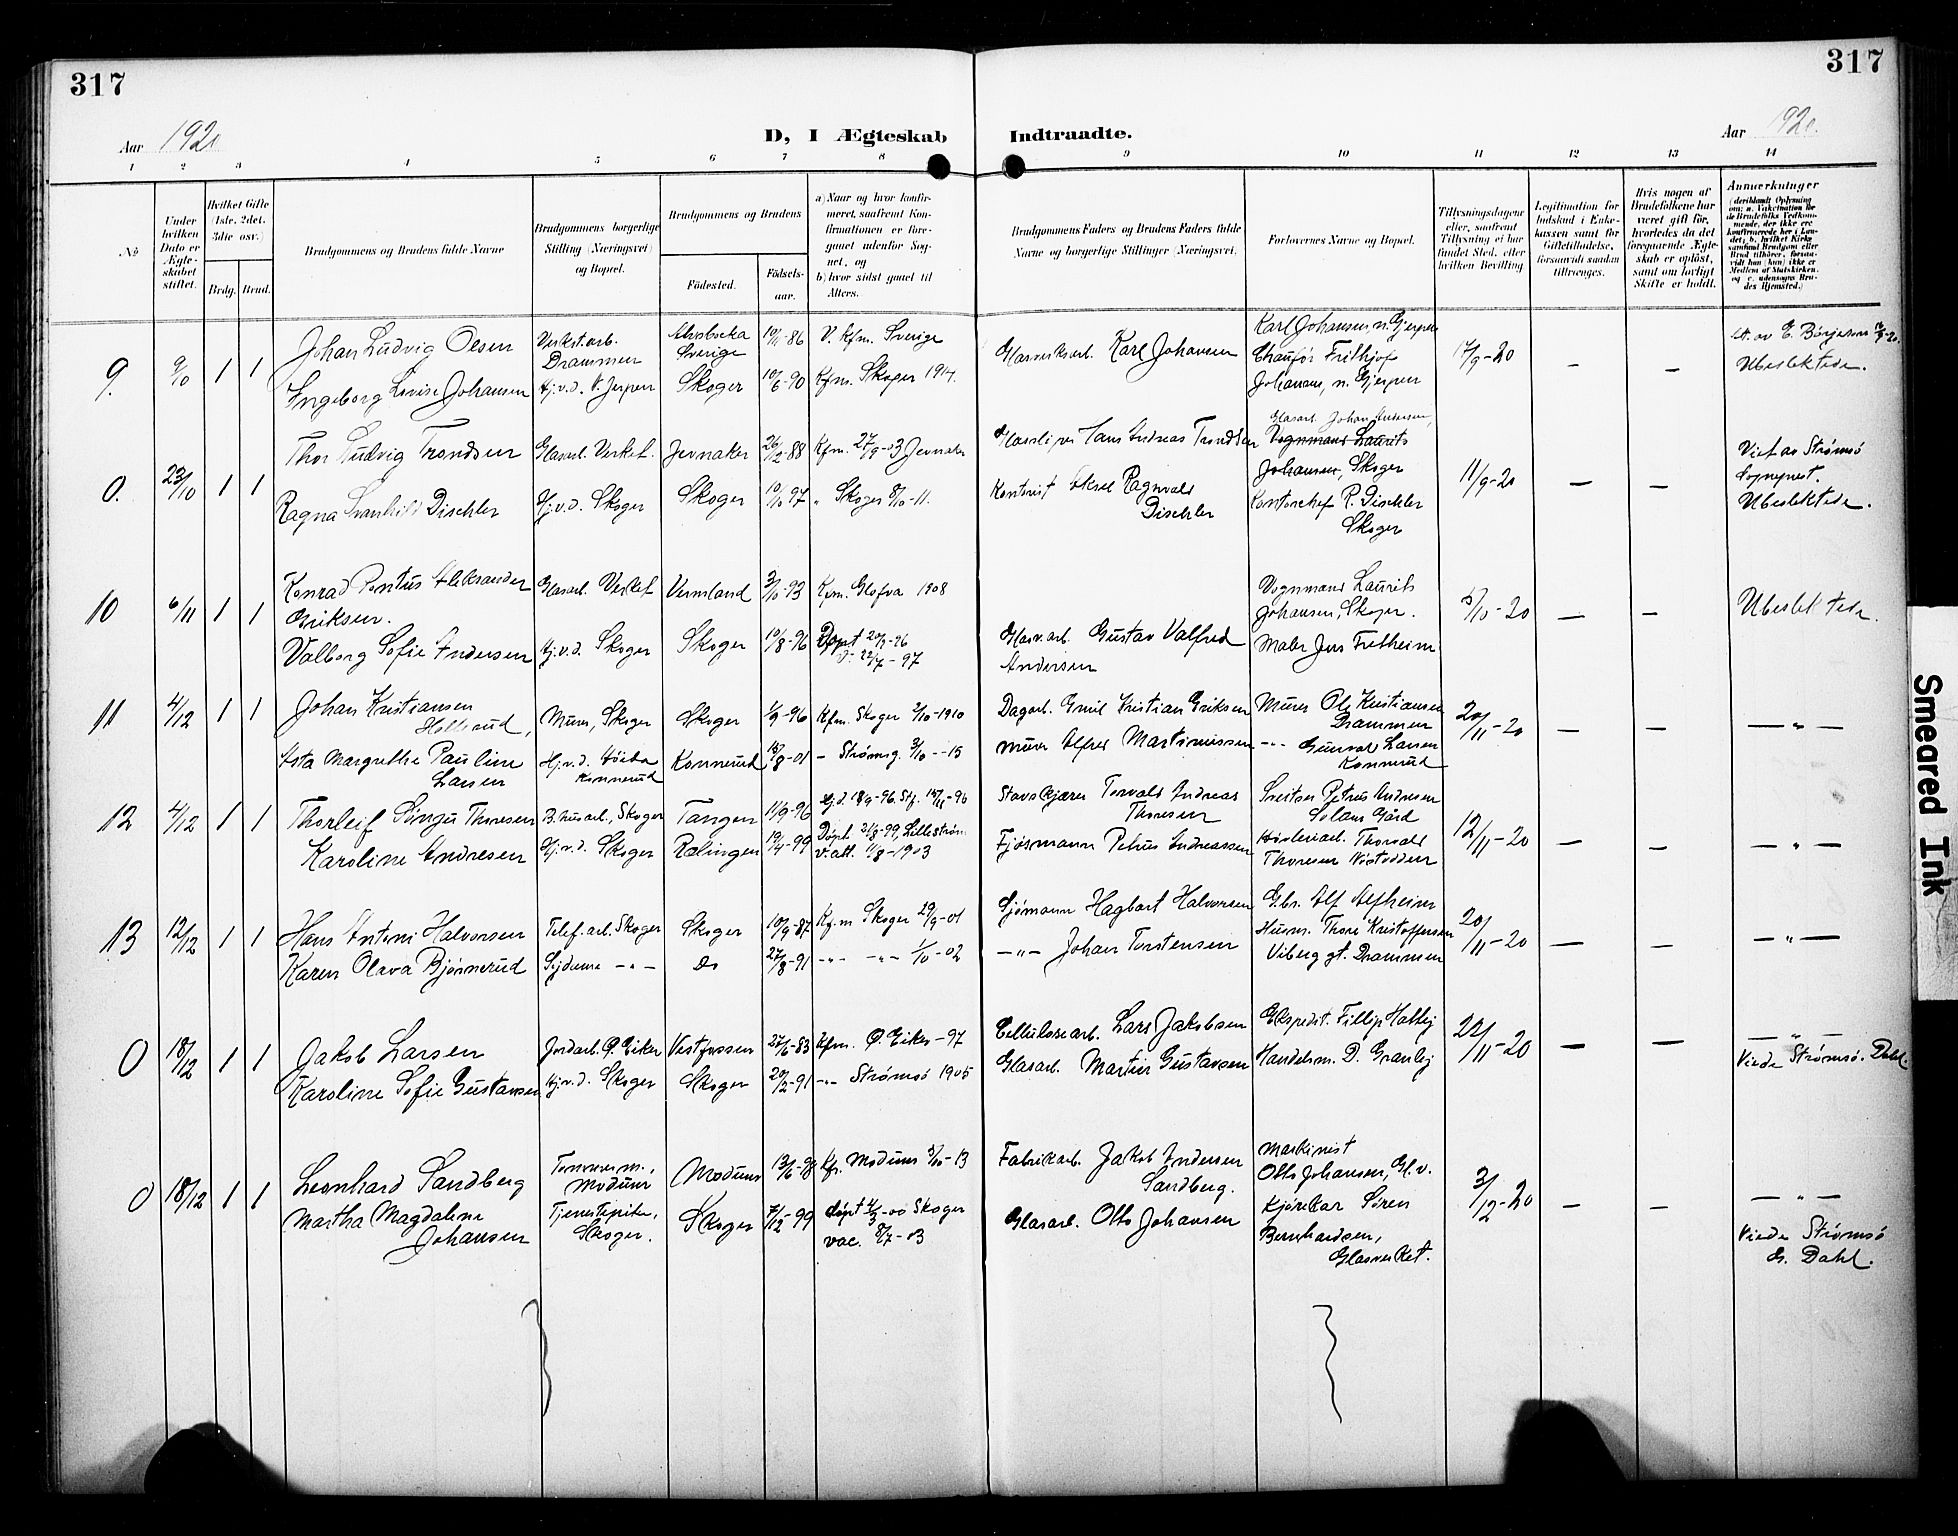 317
317
Aar 1920
D, I Ægteskab Indtraadte.
Aar 1920.
1 2 3 4 5 6 7 8 9 10 11 12 13 14
No
Under hvilken Dato er Ægteskabet stiftet.
Hvilket Gifte (1ste, 2det, 3die osv.)
Brdg. Brud.
Brudgommens og Brudens fulde Navne
Brudgommens borgerlige Stilling (Næringsvei) og Bopæl.
Brudgommens og Brudens
Födested.
Födselsaar.
a) Naar og hvor konfirmeret, saafremt Konfirmationen er foregaaet udenfor Sognet, og
b) hvor sidst gaaet til Alters.
Brudgommens Faders og Brudens Faders fulde Navne og borgerlige Stillinger (Næringsvei).
Forlovernes Navne og Bopæl.
Tillysningsdagene eller, saafremt Tillysning ei har fundet Sted, efter hvilken Bevilling
Legitimation for Indskud i Enkekassen samt for Giftetilladelse, forsaavidt saadan tiltrænges.
Hvis nogen af Brudefolkene har været gift för, hvorledes da det foregaaende Ægteskab er oplöst, samt om lovligt Skifte er holdt.
Anmerkninger
9. 9/10 1 1
Johan Ludvig Olsen
Verkst.arb. Drammen
Sverige
10/11-86
V. kfm. Sverige
Ingeborg Lovise Johansen
Hj.v.d. N. Jerpen
Skoger
10/6-90
Kfm. Skoger 1914.
Glasverksarb. Karl Johansen
Karl Johansen, n. Gjerpen
Chaufør Frithjof
Johansen, n. Gjerpen
17/9-20
-
-
Ubeslektede.
0. 23/10 1 1
Thor Ludvig Trondsen
Glasarb. Verket.
Jevnaker
26/12-88
Kfm. 27/9-03 Jevnaker
Ragna Svanhild Dischler
Hj.v.d. Skoger
Skoger
10/10-97
" Skoger 8/10-11.
Glassliper Hans Andreas Trondsen
Kontorist Aksel Ragnvald
Dischler
Glasarb. Johan Andersen,
Vognmand Laurits
Johansen, Skoger
Kontorchef R. Dischler
Skoger
11/9-20
-
-
Viet av Strømsø
Sogneprest.
Ubeslektede.
10 6/11 1 1
Konrad Pontus Aleksander
Eriksen.
Glasarb. Verket
Vermland
3/10-93
Kfm. Glafva 1908
Valborg Sofie Andersen
Hj.v.d. Skoger
Skoger
10/8-96
Døpt 20/9-96
v. 22/7-97
Glasv.arb. Gustav Valfred
Andersen
Vognmand Laurits
Johansen, Skoger.
Maler Jens Fretheim
5/10-20
-
-
Ubeslektede.
11 4/12 1 1
Johan Kristiansen
Murer, Skoger
Skoger
1/9-96
Kfm. Skoger 2/10-1910
Asta Margrethe Pauline
Larsen
Konnerud
Konnerud
18/8-01
- Strømsg. 3/10--15
Dagarb. Emil Kristian Eriksen
Murer Alfred Martiniussen
Murer Ole Kristiansen
Drammen
-"- Gunvald Larsen
Konnerud
20/11-20
-
-
-"-
12 4/12 1 1
Thorleif Sinqu Thoresen
B.husarb., Skoger
Tangen
11/9-96
Karoline Andresen
Hj.v.d. Skoger
Rælingen
19/4-99
Døpt 21/8-99, Lillestrøm
v.att. 11/8-1903
Stavskjærer Torvald Andreas
Thoresen
Fjøsmann Petrus Andreassen
Sveitser Petrus Andresen
Solum Gård
Thorvald
Thoresen
12/11-20
-
-
-"-
13 12/12 1 1
Hans Antoni Halvorsen
Telef.arb. Skoger
Skoger
10/9-87
Kfm Skoger 29/9-01
Karen Olava Bjørnerud
Sydame -"-
Do
27/8-91
-"- -"- 1/10-02
Sjømann Hagbart Halvorsen
-"- Johan Torstensen
Gbr. Alf Alfheim
Thore Kristoffersen
Viberg gt. Drammen
20/11-20
-
-
-"-
0 18/12 1 1
Jakob Larsen
Jordarb. Ø. Eiker
Vestfossen
27/6-83
Kfm. Ø Eiker-97
Karoline Sofie Gustavsen
Hj.v.d. Skoger
Skoger
20/2-91
-"- Strømsø 1905
Cellulosearb. Lars Jakobsen
Glasarb. Martin Gustavsen
Ekspedit. Fillip Holtej
Handelsm. D. Granlej
22/11-20
-
-
-"-
Viede Strømsø. Dahl.
0 18/12 1 1
Leonhard Sandberg
Tømmerm., Modum
Modum
13/6-98
Kfr. Modum 5/10-13
Martha Magdalene
Johansen
Tjenestepike,
Skoger.
Skoger
7/12-99
døpt 4/3-00 Skoger
vac. 8/7-03
Fabrikarb. Jakob Andersen
Sandberg.
Glasarb. Otto Johansen
Maskinist
Otto Johansen, Gl.v.
Kjørekar Søren
Bernhardsen,
Glasverket.
3/12-20
-
-
-"-
Viede Strømsø
G. Dahl.
Smeared Ink